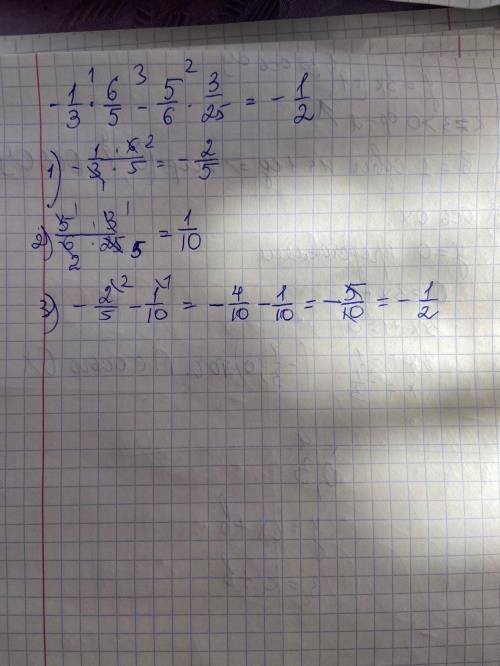 -1/3 ·¹ 6/5 -³ 5/6 ·² 3/25 = -1/2
1) -(1 · 6 2)/(3 1 · 5) = -2/5
2) (5 1 · 3 1)/(6 2 · 25 5) = 1/10
3) -2/5 \2 - 1/10 \1 = -4/10 - 1/10 = -5/10 = -1/2